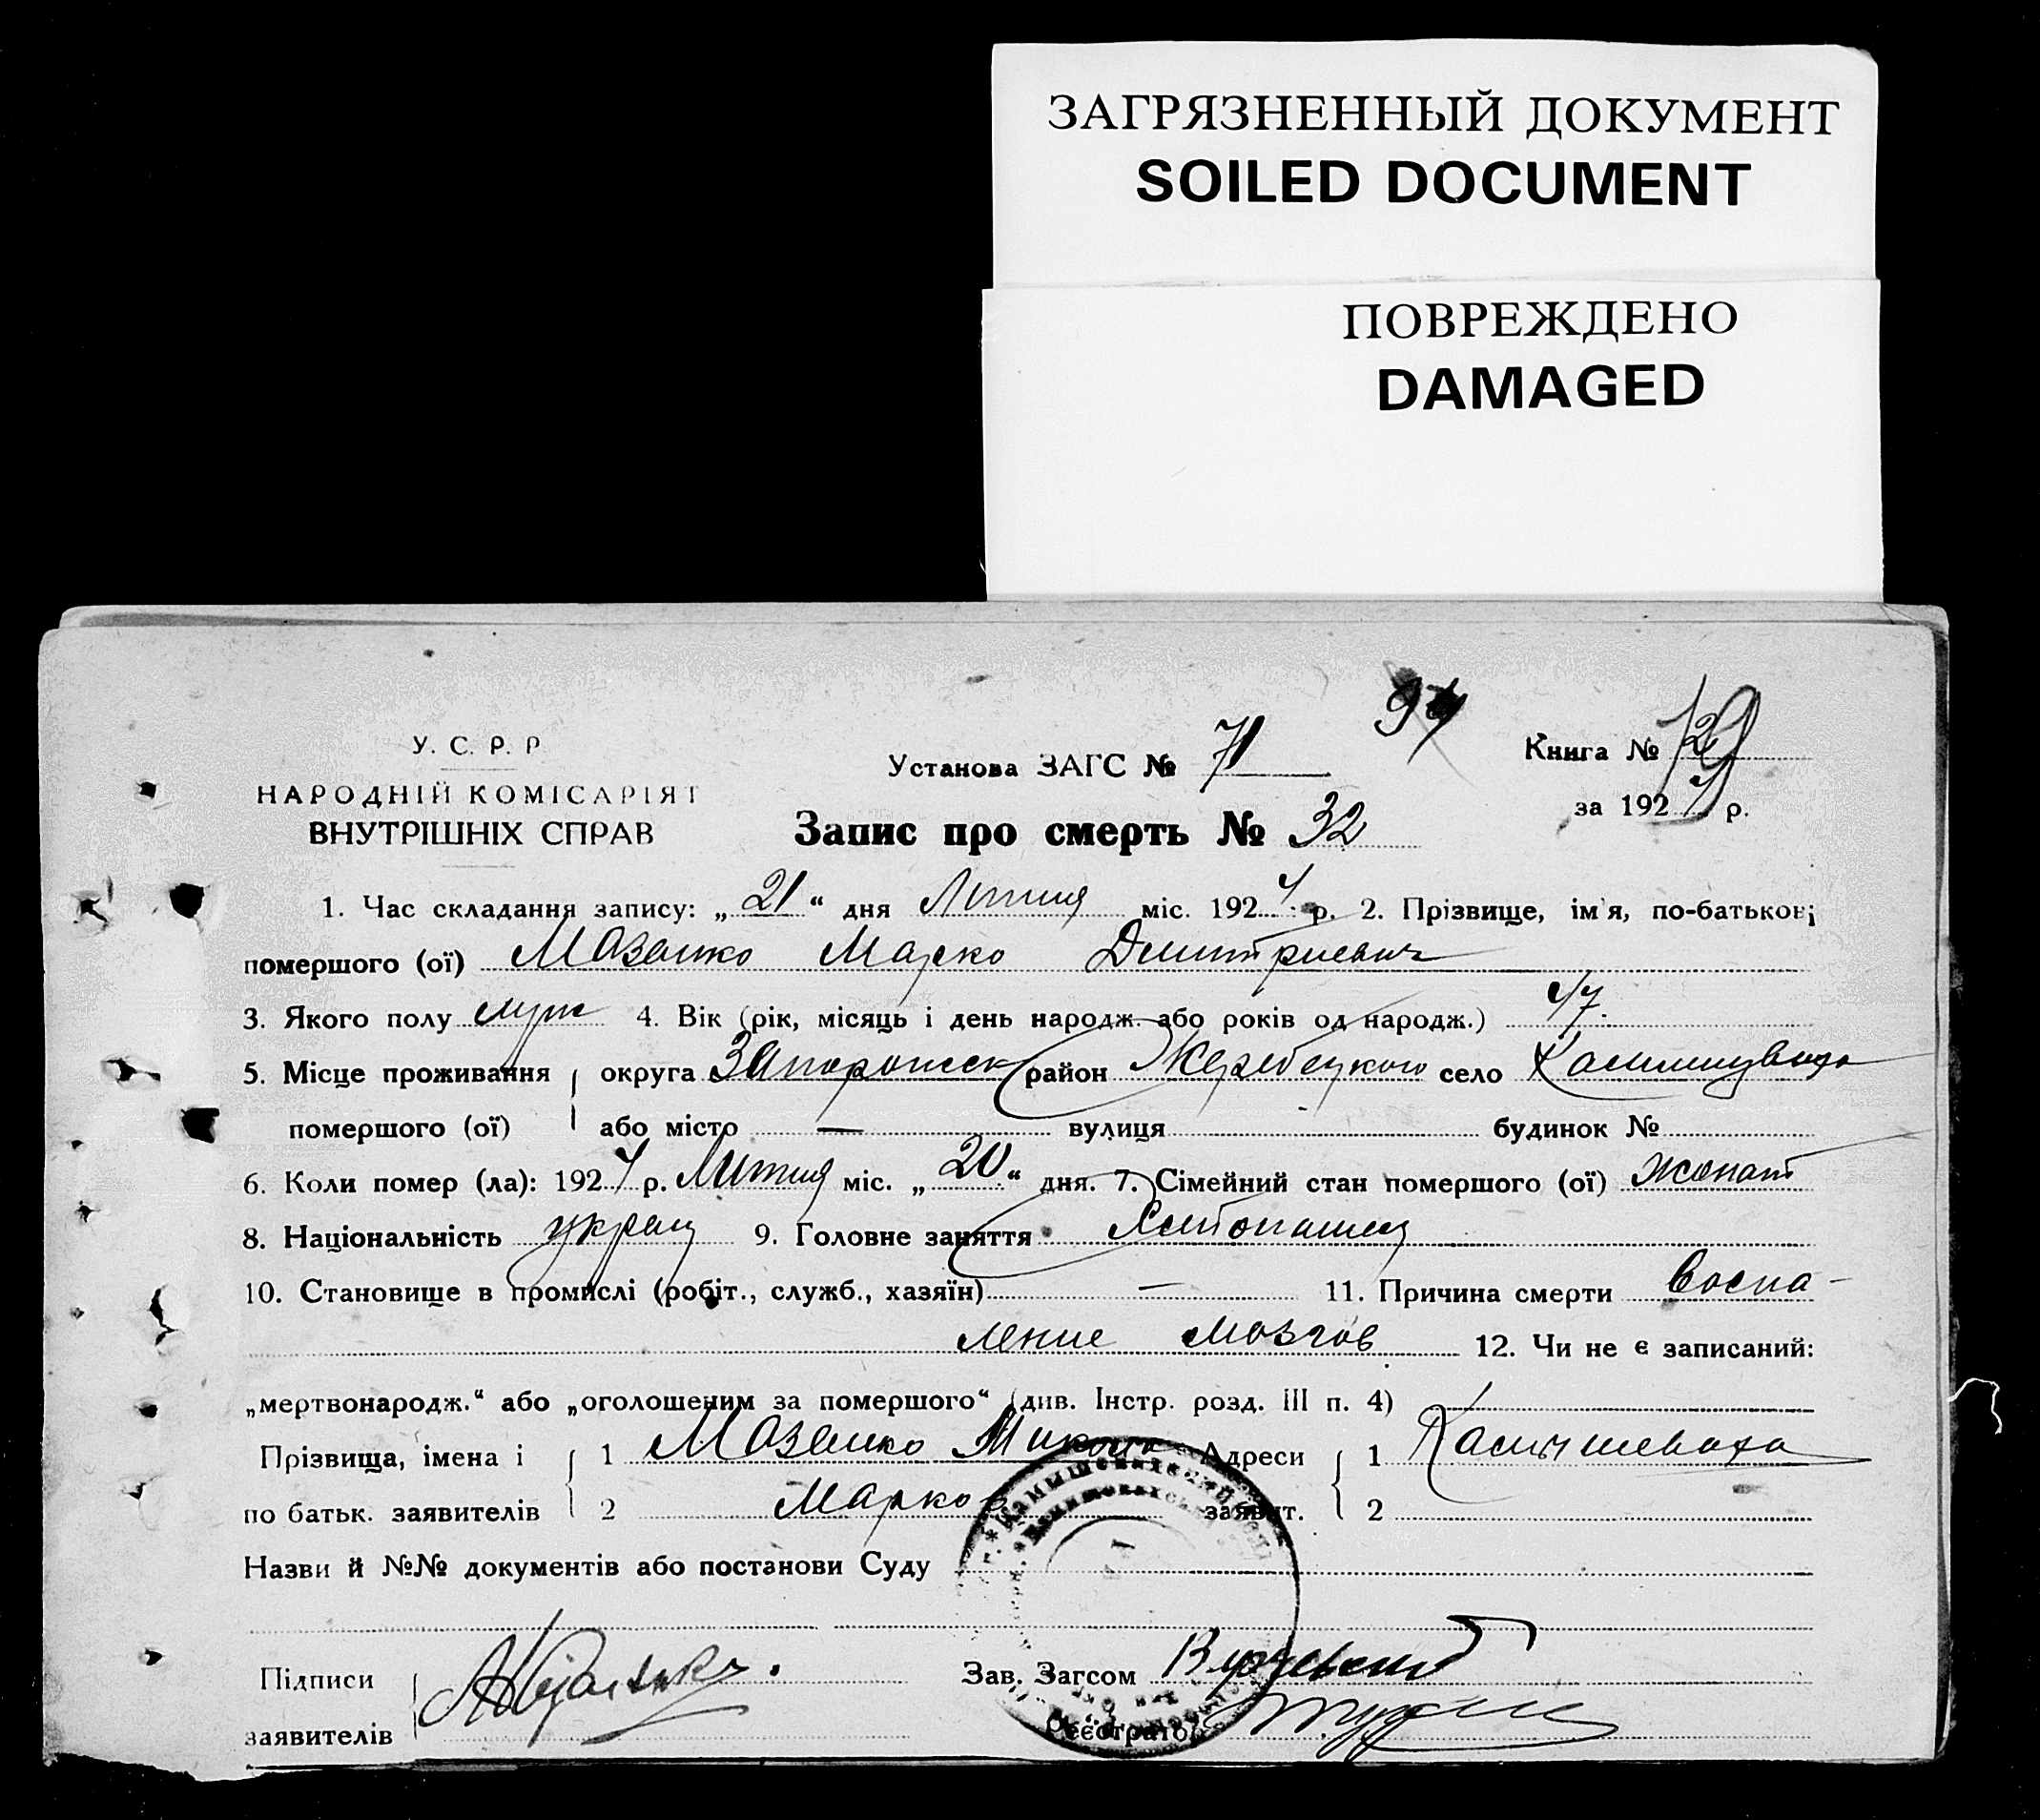 ЗАГРЯЗНЕННЫЙ ДОКУМЕНТ
SOILED DOCUMENT
ПОВРЕЖДЕНО
DAMAGED
У. С. Р. Р.
НАРОДНІЙ КОМІСАРІЯТ
ВНУТРІШНІХ СПРАВ
Установа ЗАГС № 71
Книга №
за 192 р.
Запис про смерть № 32
1. Час складання запису: „21“ дня Лютня міс. 1924 р. 2. Прізвище, ім'я, по-батькові
помершого (ої) Мазенко Марко Дмитриевич
3. Якого полу муж 4. Вік (рік, місяць і день народж. або років од народж.) 47.
5. Місце проживання округа Запорожск район Жеребецкого село
помершого (ої) або місто — вулиця будинок №
6. Коли помер (ла): 1924 р. міс. „20“ дня. 7. Сімейний стан помершого (ої) жонат
8. Національність украц 9. Головне заняття Хлібопашец
10. Становище в промислі (робіт., служб., хазяїн) — 11. Причина смерти Воспа-
ление мозгов 12. Чи не є записаний:
„мертвонародж.“ або „оголошеним за помершого“ (див. Інстр. розд. III п. 4)
Прізвища, імена і 1 Мазенко Адреси 1 Камышеваха
по батьк. заявителів 2 Марков заявит. 2
Назви й №№ документів або постанови Суду
Підписи Зав. Загсом
заявителів Реєстратор